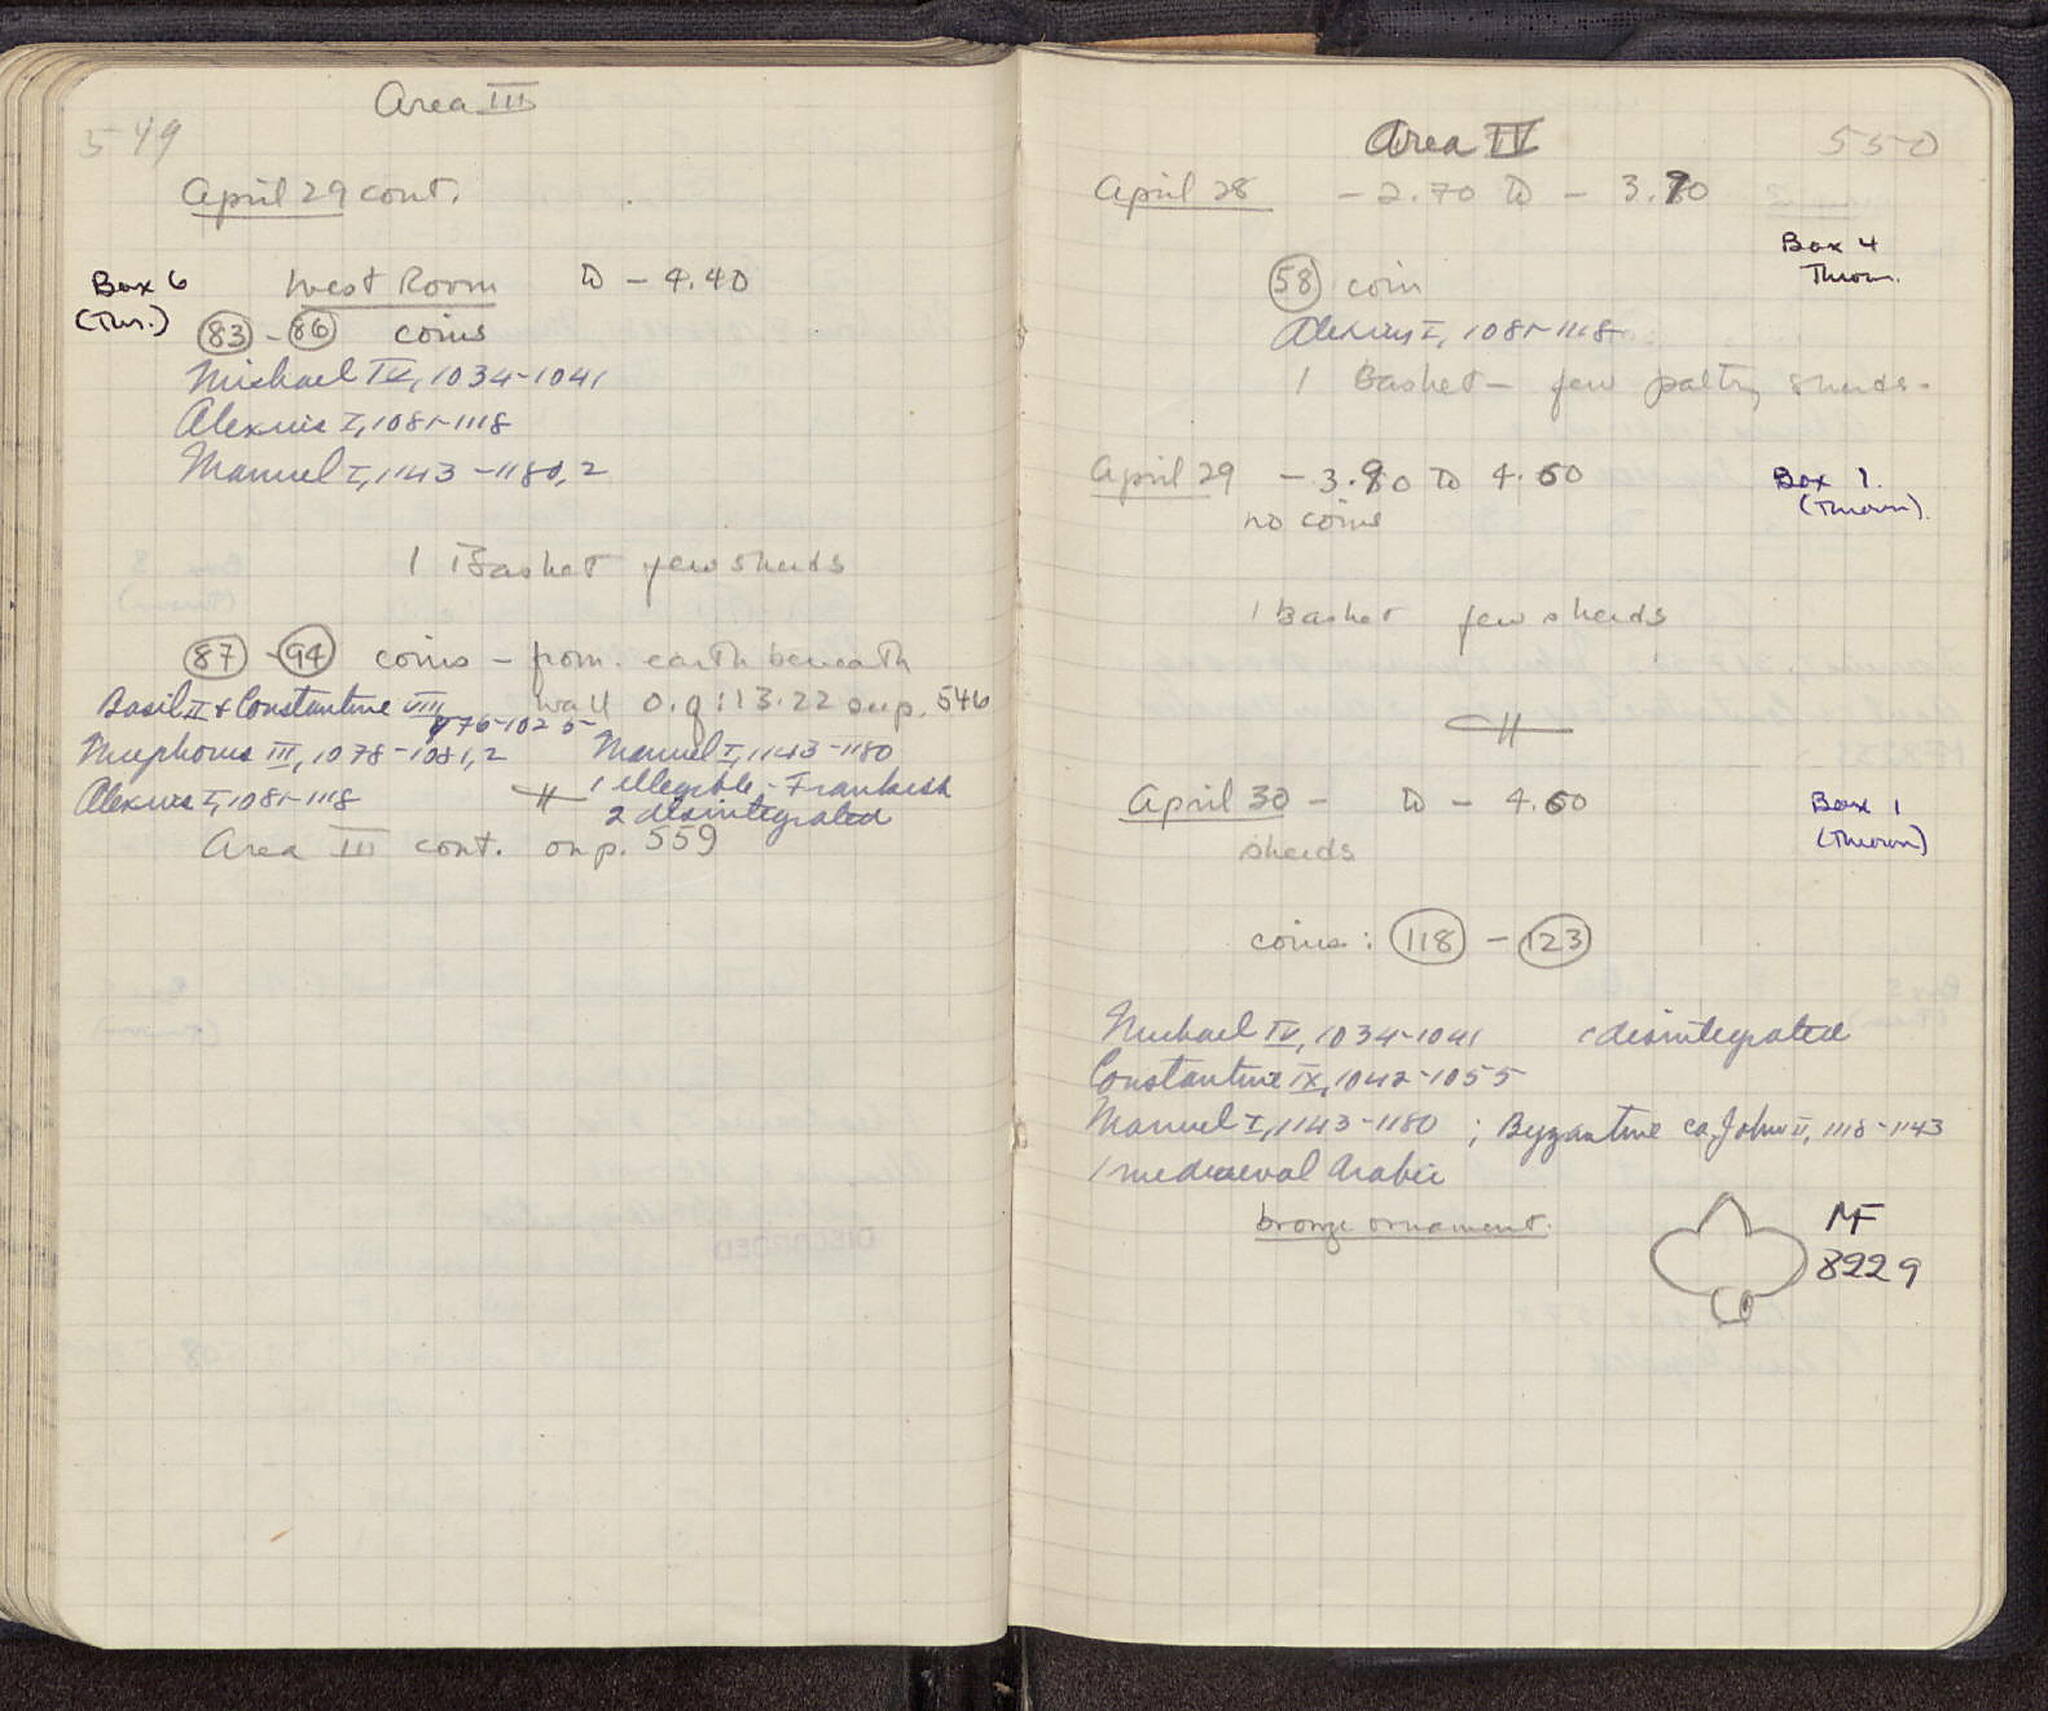 Area III
549
April 29 cont.
Box 6
(Thr.)
West Room to - 4.40
83 - 86 coins
Michael IV, 1034-1041
Alexius I, 1081-1118
Manuel I, 1143-1180, 2
1 Basket few sherds
87 - 94 coins - from earth beneath
wall o.g:13.22 sup. 546
Basil II & Constantine VIII
976-1025
Nicephorus III, 1078-1081, 2
Manuel I, 1143-1180
Alexius I, 1081-1118
1 illegible - Frankish
2 disintegrated
Area III cont. on p. 559
Area IV
550
April 28 - 2.70 to - 3.90
Box 4
Thrown.
58 coin
Alexius I, 1081-1118
1 Basket - few paltry sherds.
April 29 - 3.90 to 4.60
Box 1.
(Thrown).
no coins
1 Basket few sherds
April 30 - to - 4.60
Box 1
(Thrown)
sherds
coins: 118 - 123
Michael IV, 1034-1041 1 disintegrated
Constantine IX, 1042-1055
Manuel I, 1143-1180 ; Byzantine ca. John II, 1118-1143
1 mediaeval Arabic
bronze ornament.
MF
8229